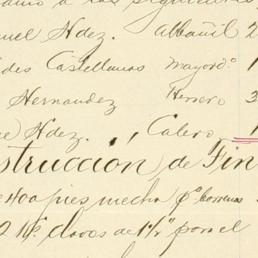 uel Hdez. Albañil 2
des Castellanos mayord.º 1
Hernandez Herrero 3
e Hdez. Calero 1
strucción de Fin
400 pies mecha pª barrenos
2 Hk. clavos de 1½" para el